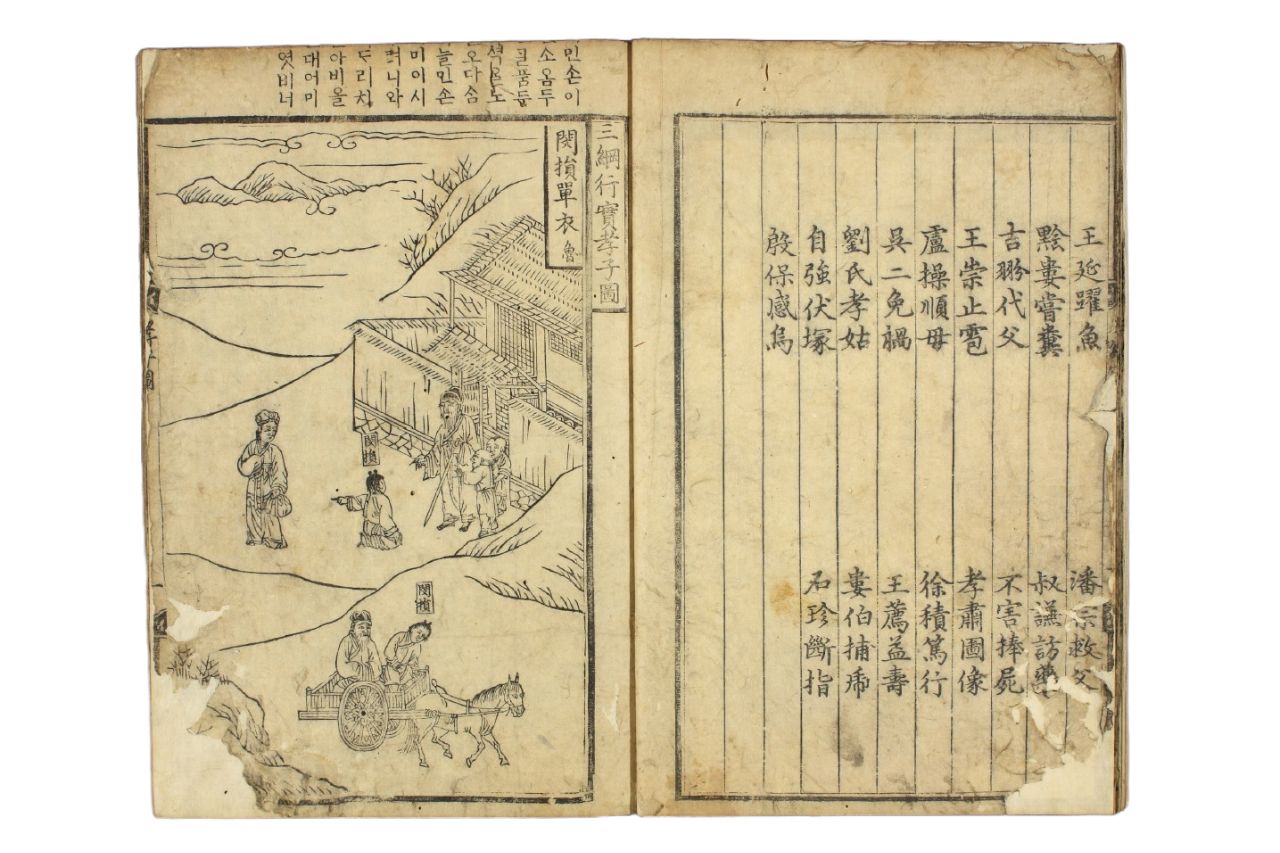 王延躍魚 潘宗救父
黔婁嘗糞 叔謙訪藥
吉翂代父 不害捧屍
王崇止雹 孝肅圖像
盧操順母 徐積篤行
吳二免禍 王薦益壽
劉氏孝姑 婁伯捕虎
自強伏塚 石珍斷指
殷保感烏
三綱行實孝子圖
민손이
소옴두
품듯
노
오다솜
늘민손
미이시
니와
리치
아비올
대어미
엿비너
閔損單衣 魯
閔損
閔損